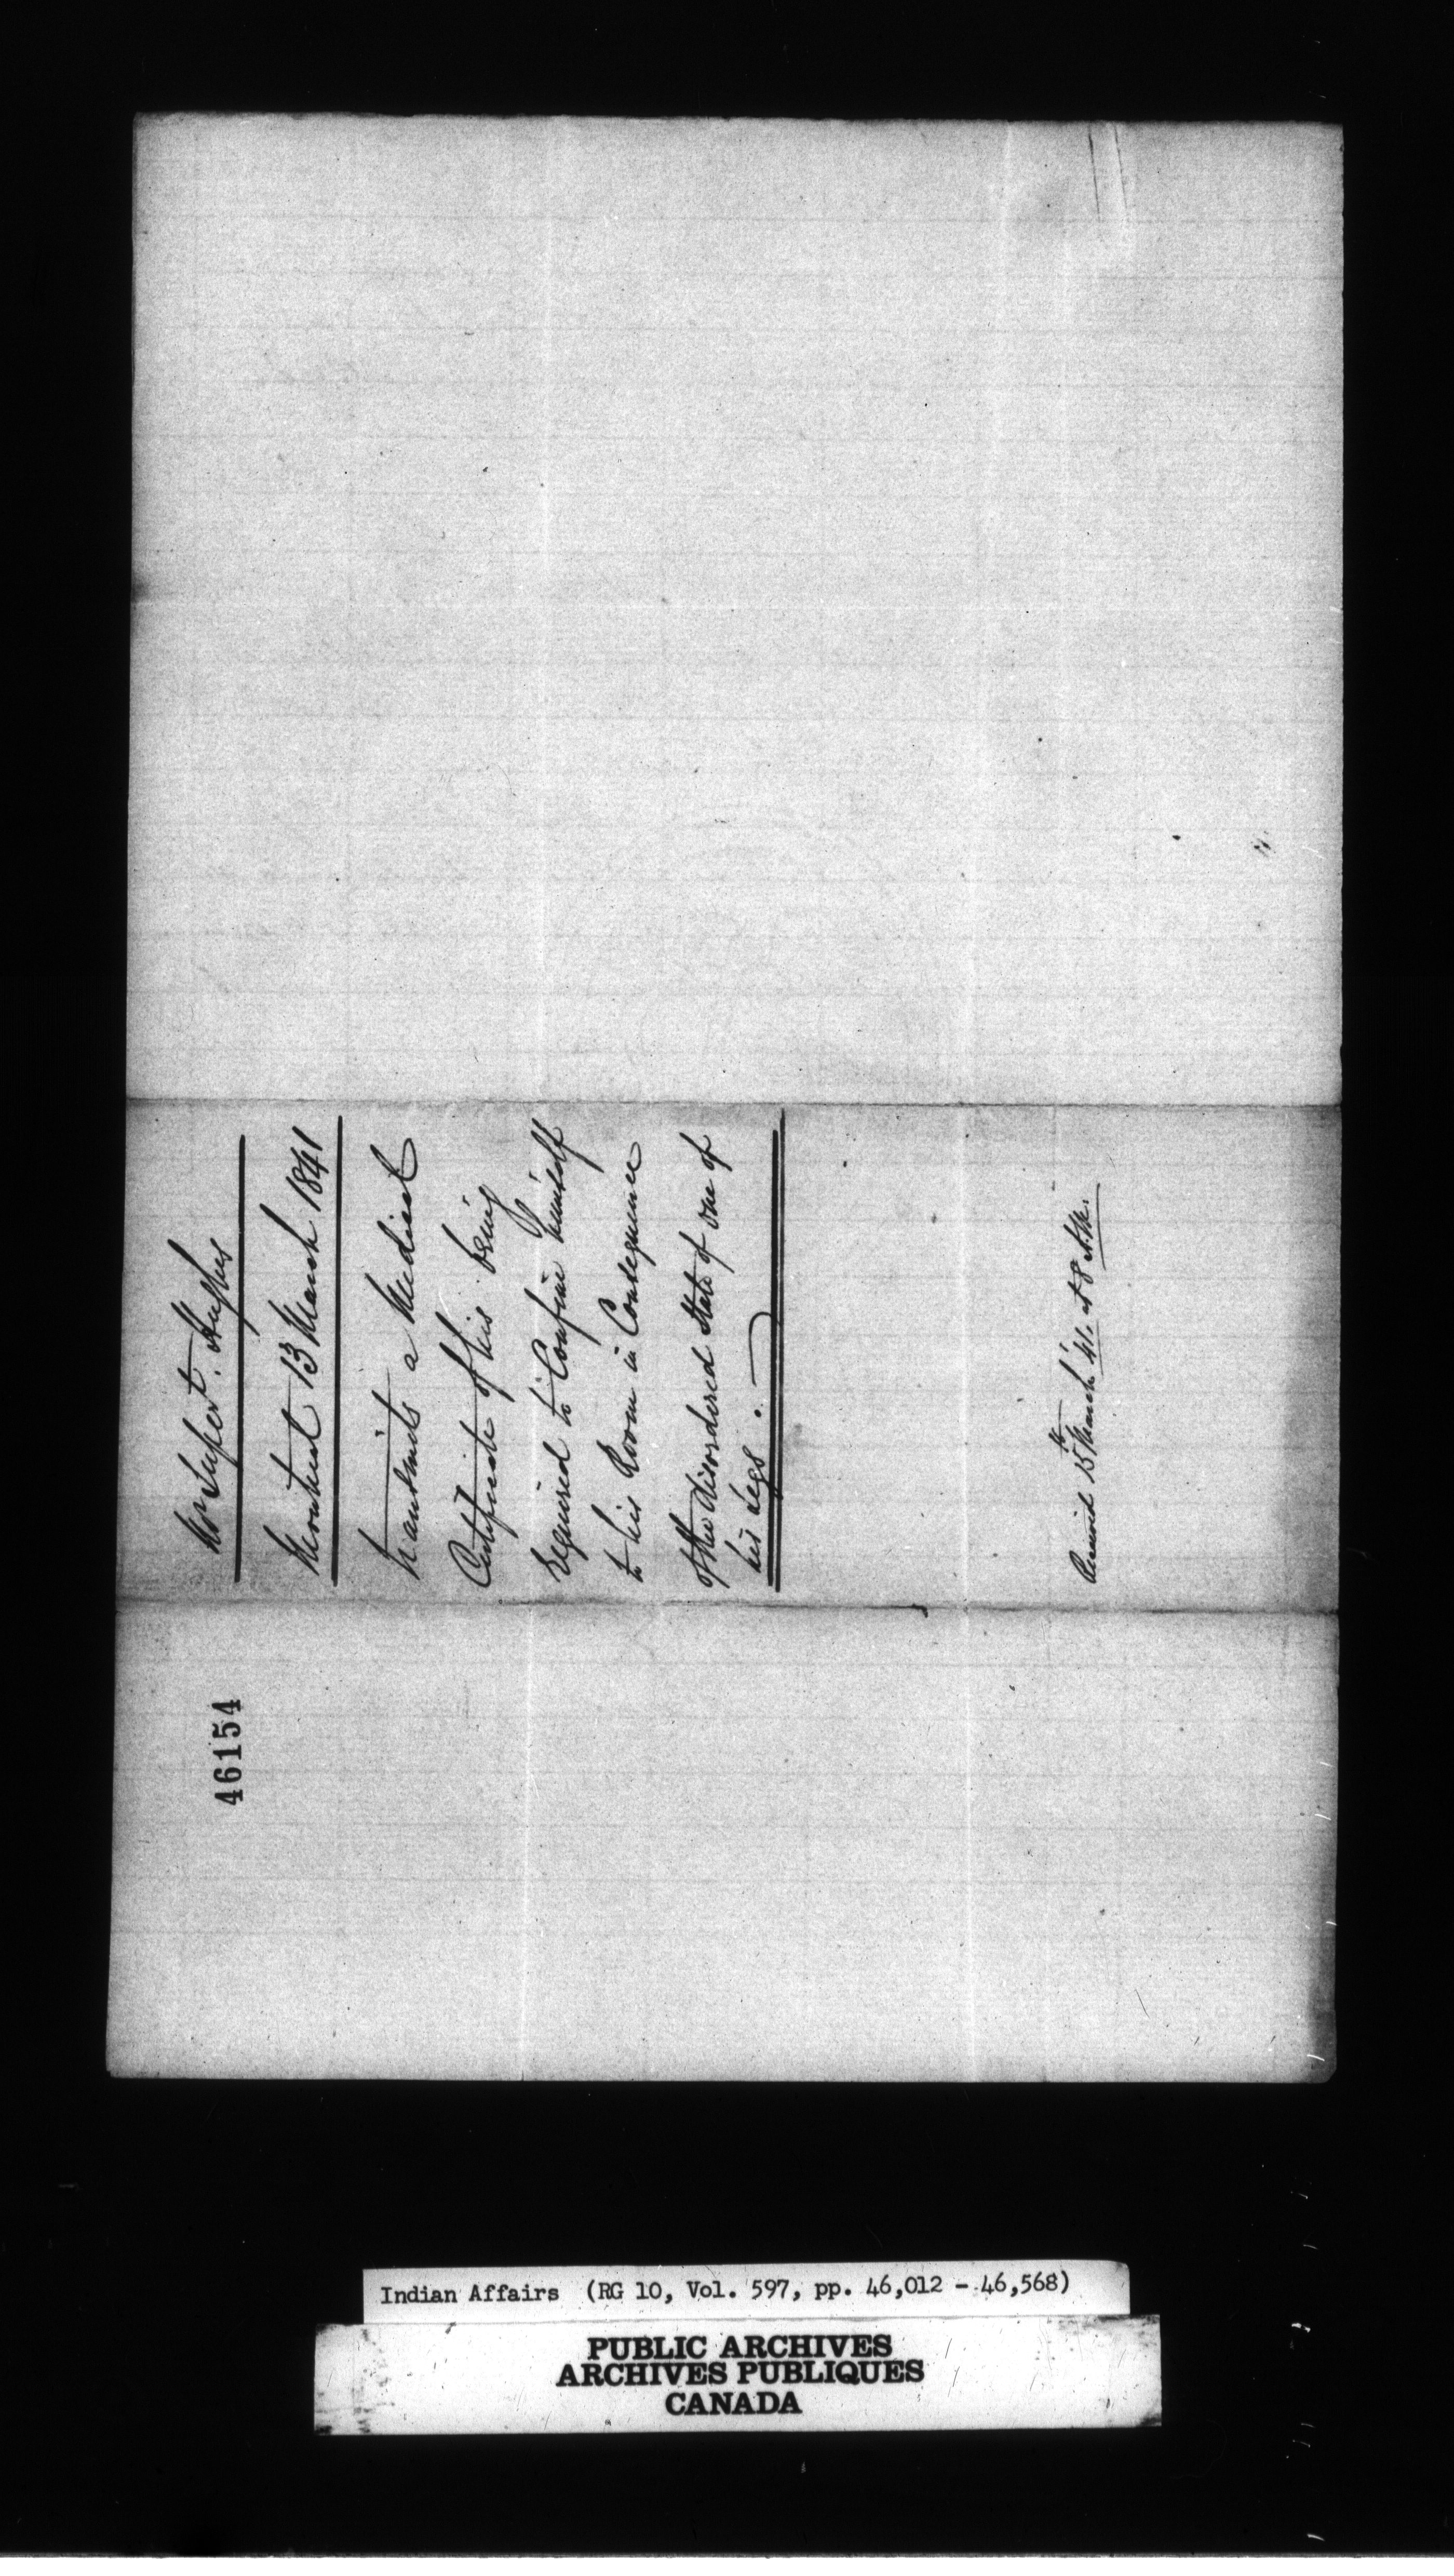 Mr Supert. Hughes
Montreal 13 March 1841
transmits a Medical
Certificate of his being
required to Confine himself
to his Room in Consequence
of the disordered State of one of
his Legs.
Received 15th March '41. at 8 A.M.
46154
Indian Affairs (RG 10, Vol. 597, pp. 46,012 - 46,568)
PUBLIC ARCHIVES
ARCHIVES PUBLIQUES
CANADA